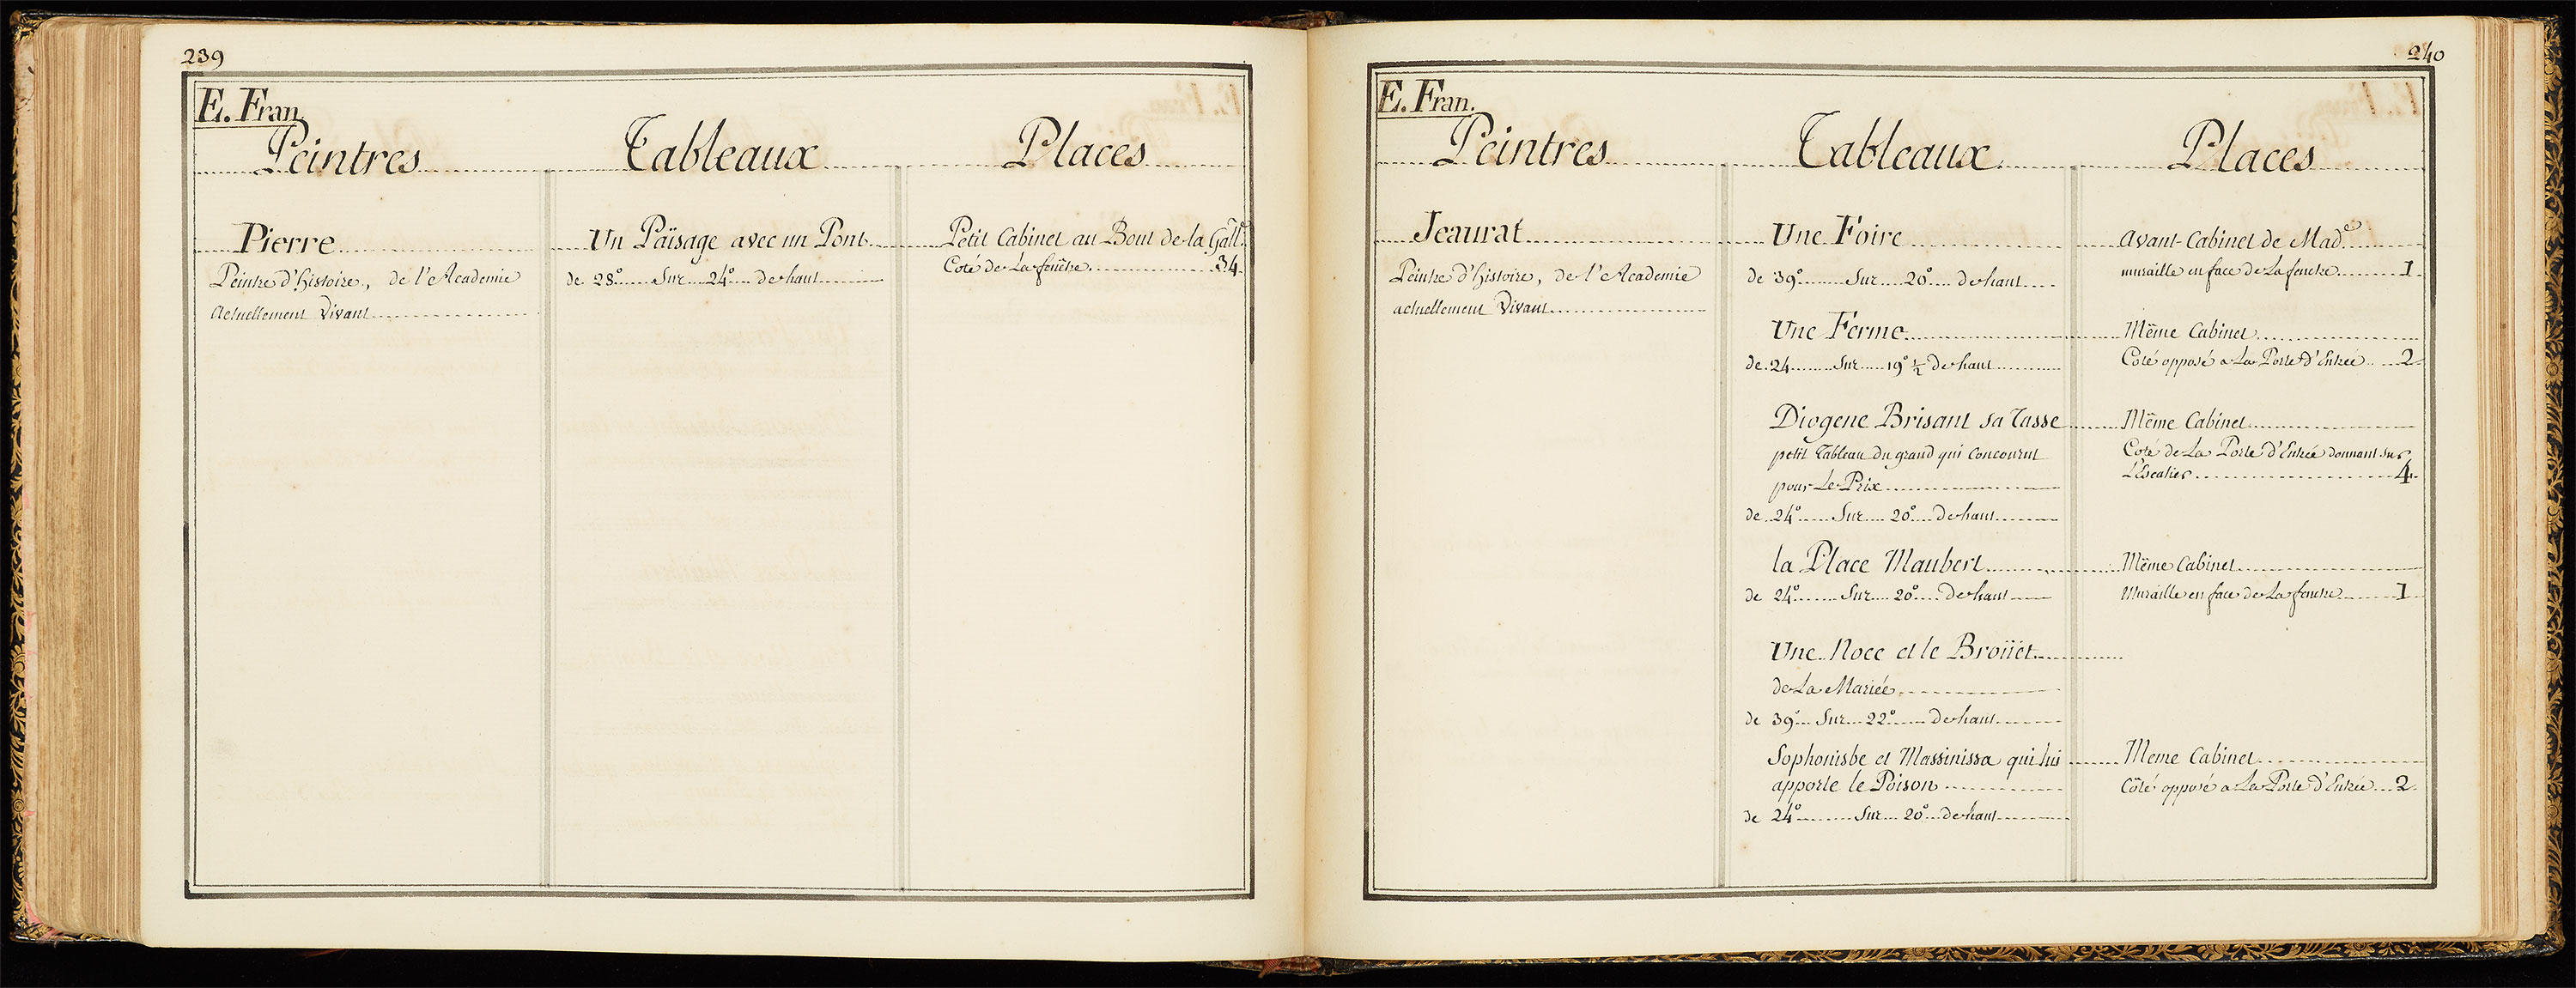 239
E. Fran.
Peintres Tableaux Places
Pierre Un Païsage avec un Pont Petit Cabinet au Bout de la Gall.
Peintre d'histoire, de l'Academie de 28° Sur 24° de haut Coté de La fenêtre 34.
Actuellement Vivant
240
E. Fran.
Peintres Tableaux Places
Jeaurat Une Foire Avant-Cabinet de Mad.e
Peintre d'histoire, de l'Academie de 39° Sur 20° de haut muraille en face de La fenetre 1.
actuellement Vivant
Une Ferme Même Cabinet
de 24 Sur 19° ½ de haut Coté opposé a La Porte d'Entrée 2
Diogene Brisant sa Tasse Même Cabinet
petit Tableau du grand qui Concourut Coté de La Porte d'Entrée donnant sur
pour Le Prix L'Escalier 4.
de 24° Sur 20° de haut
la Place Maubert Même Cabinet
de 24° Sur 20° de haut Muraille en face de La fenetre 1
Une Noce et le Broüet
de La Mariée
de 39° Sur 22° de haut
Sophonisbe et Massinissa qui lui Meme Cabinet
apporte le Poison Côté opposé a La Porte d'Entrée 2.
de 24° Sur 20° de haut